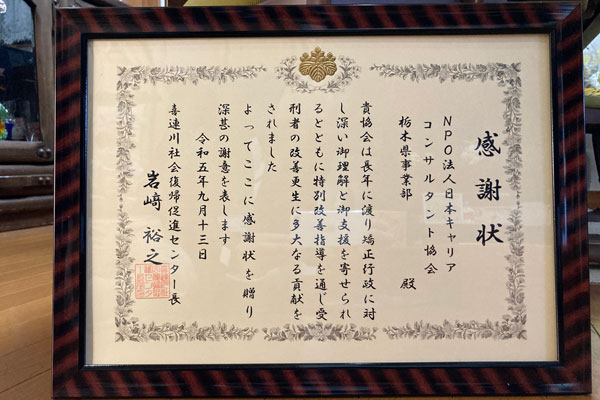 感謝状
NPO法人日本キャリア
コンサルタント協会
栃木県事業部　殿
貴協会は長年に渡り矯正行政に対
し深い御理解と御支援を寄せられ
るとともに特別改善指導を通じ受
刑者の改善更生に多大なる貢献を
されました
よってここに感謝状を贈り
深甚の謝意を表します
令和五年九月十三日
喜連川社会復帰促進センター長
岩﨑裕之